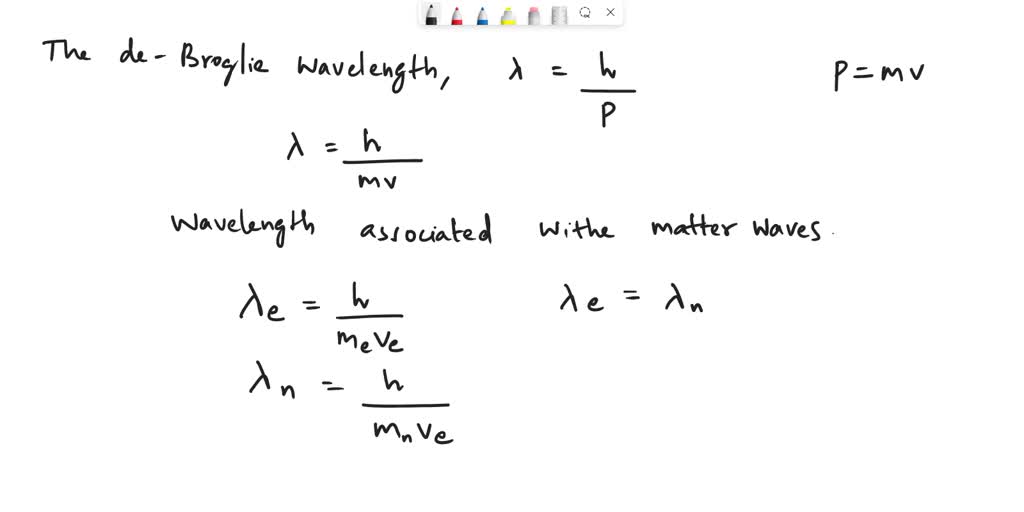 The de-Broglie Wavelength, λ = h/P P = mv
λ = h/mv
Wavelength associated withe matter waves.
λe = h/meve λe = λn
λn = h/mnve